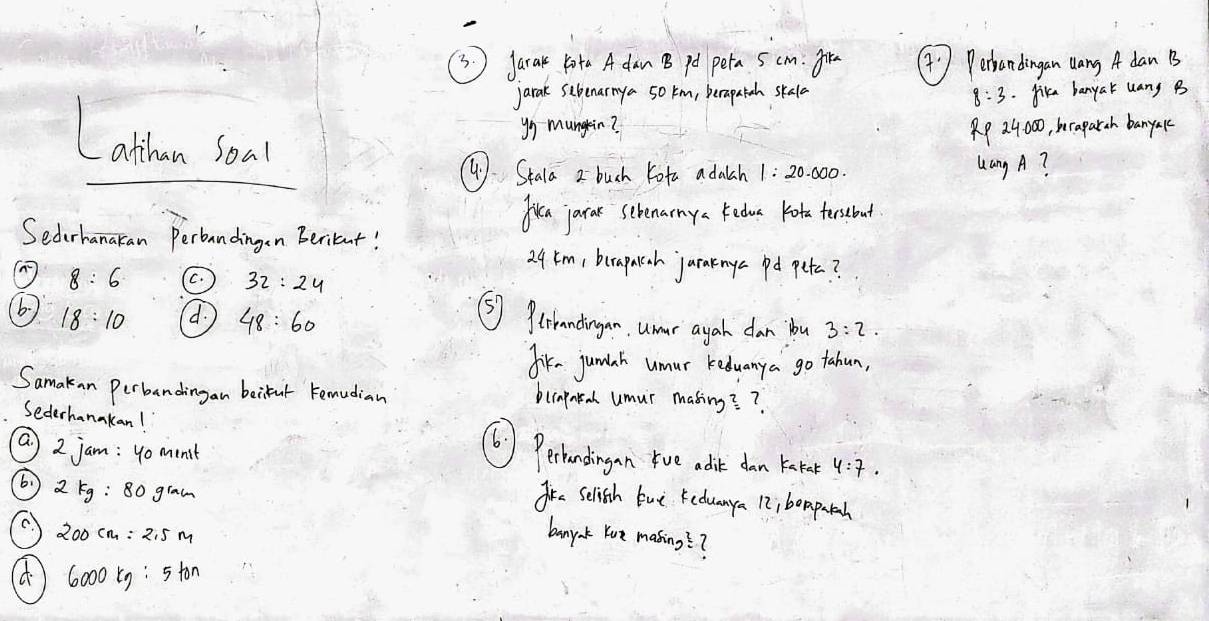 Latihan Soal
Sederhanakan Perbandingan Berikut!
a. 8 : 6
c. 32 : 24
b. 18 : 10
d. 48 : 60
Samakan perbandingan berikut kemudian
Sederhanakan!
a. 2 jam : 40 menit
b. 2 kg : 80 gram
c. 200 cm : 2,5 m
d. 6000 kg : 5 ton
3. Jarak kota A dan B pd peta 5 cm. Jika
jarak sebenarnya 50 km, berapakah skala
yg mungkin?
4. Skala 2 buah kota adalah 1 : 20.000.
Jika jarak sebenarnya kedua kota tersebut
24 km, berapakah jaraknya pd peta?
5. Perbandingan umur ayah dan ibu 3:2.
Jika jumlah umur keduanya 90 tahun,
berapakah umur masing2 ?
6. Perbandingan kue adik dan kakak 4:7.
Jika selisih kue keduanya 12, berapakah
banyak kue masing2 ?
7. Perbandingan uang A dan B
8:3. Jika banyak uang B
Rp 24.000, berapakah banyak
uang A ?